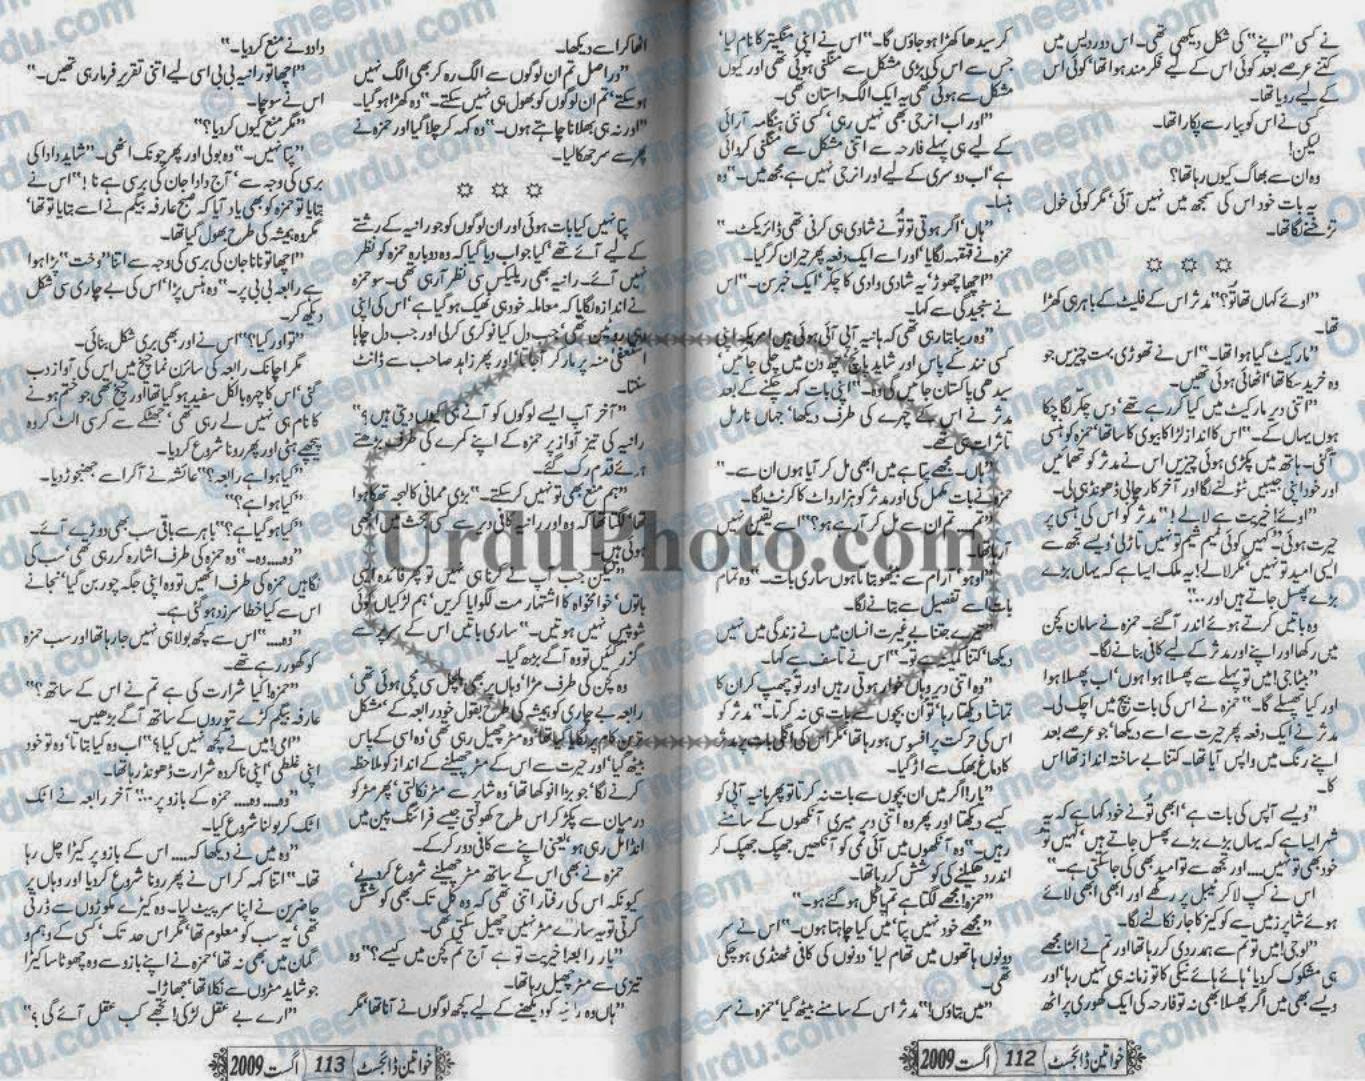 نے کسی ”اپنے“ کی شکل دیکھی تھی۔ اس دور دیس میں
کتنے عرصے بعد کوئی اس کے لیے فکرمند ہوا تھا‘ کوئی اس
کے لیے رویا تھا۔
کسی نے اس کو پیار سے پکارا تھا۔
لیکن!
وہ ان سے بھاگ کیوں رہا تھا؟
یہ بات خود اس کی سمجھ میں نہیں آئی‘ مگر کوئی خول
تڑخنے لگا تھا۔
”اوئے کہاں تھا تُو؟“ مدثر اس کے فلیٹ کے باہر ہی کھڑا
تھا۔
”مارکیٹ گیا ہوا تھا۔“ اس نے تھوڑی بہت چیزیں جو
وہ خرید سکا تھا‘ اٹھائی ہوئی تھیں۔
”اتنی دیر مارکیٹ میں کیا کر رہے تھے‘ دس چکر لگا چکا
ہوں یہاں کے۔“ اس کا انداز لڑاکا بیوی کا سا تھا‘ حمزہ کو ہنسی
آ گئی۔ ہاتھ میں پکڑی ہوئی چیزیں اس نے مدثر کو تھمائیں
اور خود اپنی جیبیں ٹٹولنے لگا اور آخر کار چابی ڈھونڈ ہی لی۔
”اوئے! خیریت ہے لالے!“ مدثر کو اس کی ہنسی پر
حیرت ہوئی۔ ”کہیں کوئی میم شیم تو نہیں تاڑ لی‘ ویسے تجھ سے
ایسی امید تو نہیں‘ مگر لالے! یہ ملک ایسا ہے کہ یہاں بڑے
بڑے پھسل جاتے ہیں اور...“
وہ باتیں کرتے ہوئے اندر آ گئے۔ حمزہ نے سامان کچن
میں رکھا اور اپنے اور مدثر کے لیے کافی بنانے لگا۔
”بیٹا جی! میں تو پہلے سے پھسلا ہوا ہوں‘ اب پھسلا ہوا
اور کیا پھسلے گا۔“ حمزہ نے اس کی بات بیچ میں اچک لی۔
مدثر نے ایک دفعہ پھر حیرت سے اسے دیکھا‘ جو عرصے بعد
اپنے رنگ میں واپس آیا تھا۔ کتنا بے ساختہ انداز تھا اس
کا۔
”ویسے آپس کی بات ہے‘ ابھی تُو نے خود کہا ہے کہ یہ
شہر ایسا ہے کہ یہاں بڑے بڑے پھسل جاتے ہیں‘ کہیں تو
خود بھی تو نہیں... اور تجھ سے تو امید بھی کی جا سکتی ہے۔“
اس نے کپ لا کر ٹیبل پر رکھے اور ابھی ابھی لائے
ہوئے شاپرز میں سے کوکیز کا جار نکالنے لگا۔
”لو جی! میں تو تم سے ہمدردی کر رہا تھا اور تم نے الٹا مجھے
ہی مشکوک کر دیا‘ ہائے ہائے نیکی کا تو زمانہ ہی نہیں رہا‘ اور
ویسے بھی میں اگر پھسلا بھی نہ تو فارحہ کی ایک گھوری پر اٹھ
کر سیدھا کھڑا ہو جاؤں گا۔“ اس نے اپنی منگیتر کا نام لیا‘
جس سے اس کی بڑی مشکل سے منگنی ہوئی تھی اور کیوں
مشکل سے ہوئی تھی یہ ایک الگ داستان تھی۔
”اور اب انرجی بھی نہیں رہی‘ کسی نئی ہنگامہ آرائی
کے لیے ہی پہلے فارحہ سے اتنی مشکل سے منگنی کروائی
ہے‘ اب دوسری کے لیے اور انرجی نہیں ہے مجھ میں۔“ وہ
ہنسا۔
”ہاں‘ اگر ہوتی تو تُو نے شادی ہی کرنی تھی ڈائریکٹ۔“
حمزہ نے قہقہہ لگایا‘ اور اسے ایک دفعہ پھر حیران کر گیا۔
”اچھا چھوڑ‘ یہ شادی وادی کا چکر‘ ایک خبر سن۔“ اس
نے سنجیدگی سے کہا۔
”وہ ریبا بتا رہی تھی کہ ہانیہ آپی آئی ہوئی ہیں امریکہ اپنی
کسی نند کے پاس اور شاید پانچ چھ دن میں چلی جائیں‘
سیدھی پاکستان جائیں گی وہ۔“ اپنی بات کہہ چکنے کے بعد
مدثر نے اس کے چہرے کی طرف دیکھا‘ جہاں نارمل
تاثرات ہی تھے۔
”ہاں۔ مجھے پتا ہے میں ابھی مل کر آیا ہوں ان سے۔“
حمزہ نے بات مکمل کی اور مدثر کو ہزار واٹ کا کرنٹ لگا۔
”تم... تم ان سے مل کر آ رہے ہو؟“ اسے یقین نہیں
آ رہا تھا۔
”اوہو‘ آرام سے بیٹھو بتاتا ہوں ساری بات۔“ وہ تمام
بات اسے تفصیل سے بتانے لگا۔
”تیرے جتنا بے غیرت انسان میں نے زندگی میں نہیں
دیکھا‘ کتنا کمینہ ہے تُو۔“ اس نے تاسف سے کہا۔
”وہ اتنی دیر وہاں خوار ہوتی رہیں اور تُو چھپ کر ان کا
تماشا دیکھتا رہا‘ تُو ان بچوں سے بات ہی نہ کرتا۔“ مدثر کو
اس کی حرکت پر افسوس ہو رہا تھا‘ مگر اس کی اگلی بات پر مدثر
کا دماغ بھک سے اڑ گیا۔
”یار! اگر میں ان بچوں سے بات نہ کرتا تو پھر ہانیہ آپی کو
کیسے دیکھتا اور پھر وہ اتنی دیر میری آنکھوں کے سامنے
رہیں۔“ وہ آنکھوں میں آئی نمی کو آنکھیں جھپک جھپک کر
اندر دھکیلنے کی کوشش کر رہا تھا۔
”حمزہ! مجھے لگتا ہے تم پاگل ہو گئے ہو۔“
”مجھے خود نہیں پتا‘ میں کیا چاہتا ہوں۔“ اس نے سر
دونوں ہاتھوں میں تھام لیا‘ دونوں کی کافی ٹھنڈی ہو چکی
تھی۔
”میں بتاؤں!“ مدثر اس کے سامنے بیٹھ گیا‘ حمزہ نے سر
خواتین ڈائجسٹ 112 اگست 2009
اٹھا کر اسے دیکھا۔
”دراصل تم ان لوگوں سے الگ رہ کر بھی الگ نہیں
ہو سکتے‘ تم ان لوگوں کو بھول ہی نہیں سکتے۔“ وہ کھڑا ہو گیا۔
”اور نہ ہی بھلانا چاہتے ہوں۔“ وہ کہہ کر چلا گیا اور حمزہ نے
پھر سے سر جھکا لیا۔
پتا نہیں کیا بات ہوئی اور ان لوگوں کو جو رانیہ کے رشتے
کے لیے آئے تھے‘ کیا جواب دیا گیا کہ وہ دوبارہ حمزہ کو نظر
نہیں آئے۔ رانیہ بھی ریلیکس سی نظر آ رہی تھی۔ سو حمزہ
نے اندازہ لگایا کہ معاملہ خود ہی ٹھیک ہو گیا ہے‘ اس کی اپنی
وہی روٹین تھی‘ جب دل کیا نوکری کر لی اور جب دل چاہا
استعفیٰ منہ پر مار کر آ جاتا‘ اور پھر زاہد صاحب سے ڈانٹ
سنتا۔
”آخر آپ ایسے لوگوں کو آنے ہی کیوں دیتی ہیں؟“
رانیہ کی تیز آواز پر حمزہ کے اپنے کمرے کی طرف بڑھتے
ہوئے قدم رک گئے۔
”ہم منع بھی تو نہیں کر سکتے۔“ بڑی ممانی کا لہجہ تھکا ہوا
تھا‘ لگتا تھا کہ وہ اور رانیہ کافی دیر سے کسی بحث میں الجھی
ہوئی ہیں۔
”لیکن جب آپ نے کرنا ہی نہیں تو پھر فائدہ ایسی
باتوں‘ خوامخواہ کا اشتہار مت لگوایا کریں‘ ہم لڑکیاں کوئی
شو پیس نہیں ہوتیں۔“ ساری باتیں اس کے سر پر سے
گزر گئیں تو وہ آگے بڑھ گیا۔
وہ کچن کی طرف مڑا‘ وہاں پر بھی ہلچل سی مچی ہوئی تھی‘
رابعہ بے چاری کو ہمیشہ کی طرح بقول خود رابعہ کے ”مشکل
ترین کام پر لگایا گیا تھا‘ وہ مٹر چھیل رہی تھی‘ وہ اسی کے پاس
بیٹھ گیا‘ اور حیرت سے اس کے مٹر چھیلنے کے انداز کو ملاحظہ
کرنے لگا‘ جو بڑا انوکھا تھا‘ وہ شاپر سے مٹر نکالتی‘ پھر مٹر کو
درمیان سے پکڑ کر اس طرح کھولتی جیسے فرائنگ پین میں
انڈا مل رہی ہو‘ یعنی اپنے سے کافی دور کر کے۔
حمزہ نے بھی اس کے ساتھ مٹر چھیلنے شروع کر دیے‘
کیونکہ اس کی رفتار اتنی تھی کہ وہ کل تک بھی کوشش
کرتی تو یہ سارے مٹر نہیں چھیل سکتی تھی۔
”یار رابعہ! خیریت تو ہے آج تم کچن میں کیسے؟“ وہ
تیزی سے مٹر چھیل رہا تھا۔
”ہاں وہ رانیہ کو دیکھنے کے لیے کچھ لوگوں نے آنا تھا‘ مگر
دادو نے منع کر دیا۔“
”اچھا تو رانیہ بی بی اسی لیے اتنی تقریر فرما رہی تھیں۔“
اس نے سوچا۔
”مگر منع کیوں کر دیا؟“
”پتا نہیں۔“ وہ بولی اور پھر چونک اٹھی۔ ”شاید دادا کی
برسی کی وجہ سے‘ آج دادا جان کی برسی ہے نا!“ اس نے
بتایا تو حمزہ کو بھی یاد آیا کہ صبح عارفہ بیگم نے اسے بتایا تو تھا‘
مگر وہ ہمیشہ کی طرح بھول گیا تھا۔
”اچھا تو نانا جان کی برسی کی وجہ سے اتنا ”وخت“ پڑا ہوا
ہے رابعہ بی بی پر۔“ وہ ہنس پڑا‘ اس کی بے چاری سی شکل
دیکھ کر۔
”تو اور کیا؟“ اس نے اور بھی بری شکل بنائی۔
مگر اچانک رابعہ کی سائرن نما چیخ میں اس کی آواز دب
گئی‘ اس کا چہرہ بالکل سفید ہو گیا تھا اور چیخ تھی جو ختم ہونے
کا نام ہی نہیں لے رہی تھی‘ جھٹکے سے کرسی الٹ کر وہ
پیچھے ہٹی اور پھر رونا شروع کر دیا۔
”کیا ہوا ہے رابعہ؟“ عائشہ نے آ کر اسے جھنجوڑ دیا۔
”کیا ہوا ہے؟“
”کیا ہو گیا ہے؟“ باہر سے باقی سب بھی دوڑے آئے۔
”وہ... وہ۔“ وہ حمزہ کی طرف اشارہ کر رہی تھی‘ سب کی
نگاہیں حمزہ کی طرف اٹھیں تو وہ اپنی جگہ چور بن گیا‘ نجانے
اس سے کیا خطا سرزد ہو گئی ہے۔
”وہ....“ اس سے کچھ بولا ہی نہیں جا رہا تھا اور سب حمزہ
کو گھور رہے تھے۔
”حمزہ! کیا شرارت کی ہے تم نے اس کے ساتھ؟“
عارفہ بیگم کڑے تیوروں کے ساتھ آگے بڑھیں۔
”امی! میں نے کچھ نہیں کیا؟“ اب وہ کیا بتاتا‘ وہ تو خود
اپنی غلطی‘ اپنی ناکردہ شرارت ڈھونڈ رہا تھا۔
”وہ... وہ... حمزہ کے بازو پر...“ آخر رابعہ نے اٹک
اٹک کر بولنا شروع کیا۔
”وہ میں نے دیکھا کہ.... اس کے بازو پر کیڑا چل رہا
تھا۔“ اتنا کہہ کر اس نے پھر رونا شروع کر دیا اور وہاں پر
حاضرین نے اپنا سر پیٹ لیا۔ وہ کیڑے مکوڑوں سے ڈرتی
تھی‘ یہ سب کو معلوم تھا‘ مگر اس حد تک‘ کسی کے وہم و
گمان میں بھی نہ تھا‘ حمزہ نے اپنے بازو سے وہ چھوٹا سا کیڑا
جو شاید مٹروں سے نکلا تھا‘ جھاڑا۔
”ارے بے عقل لڑکی! تجھے کب عقل آئے گی؟“
خواتین ڈائجسٹ 113 اگست 2009
UrduPhoto.com